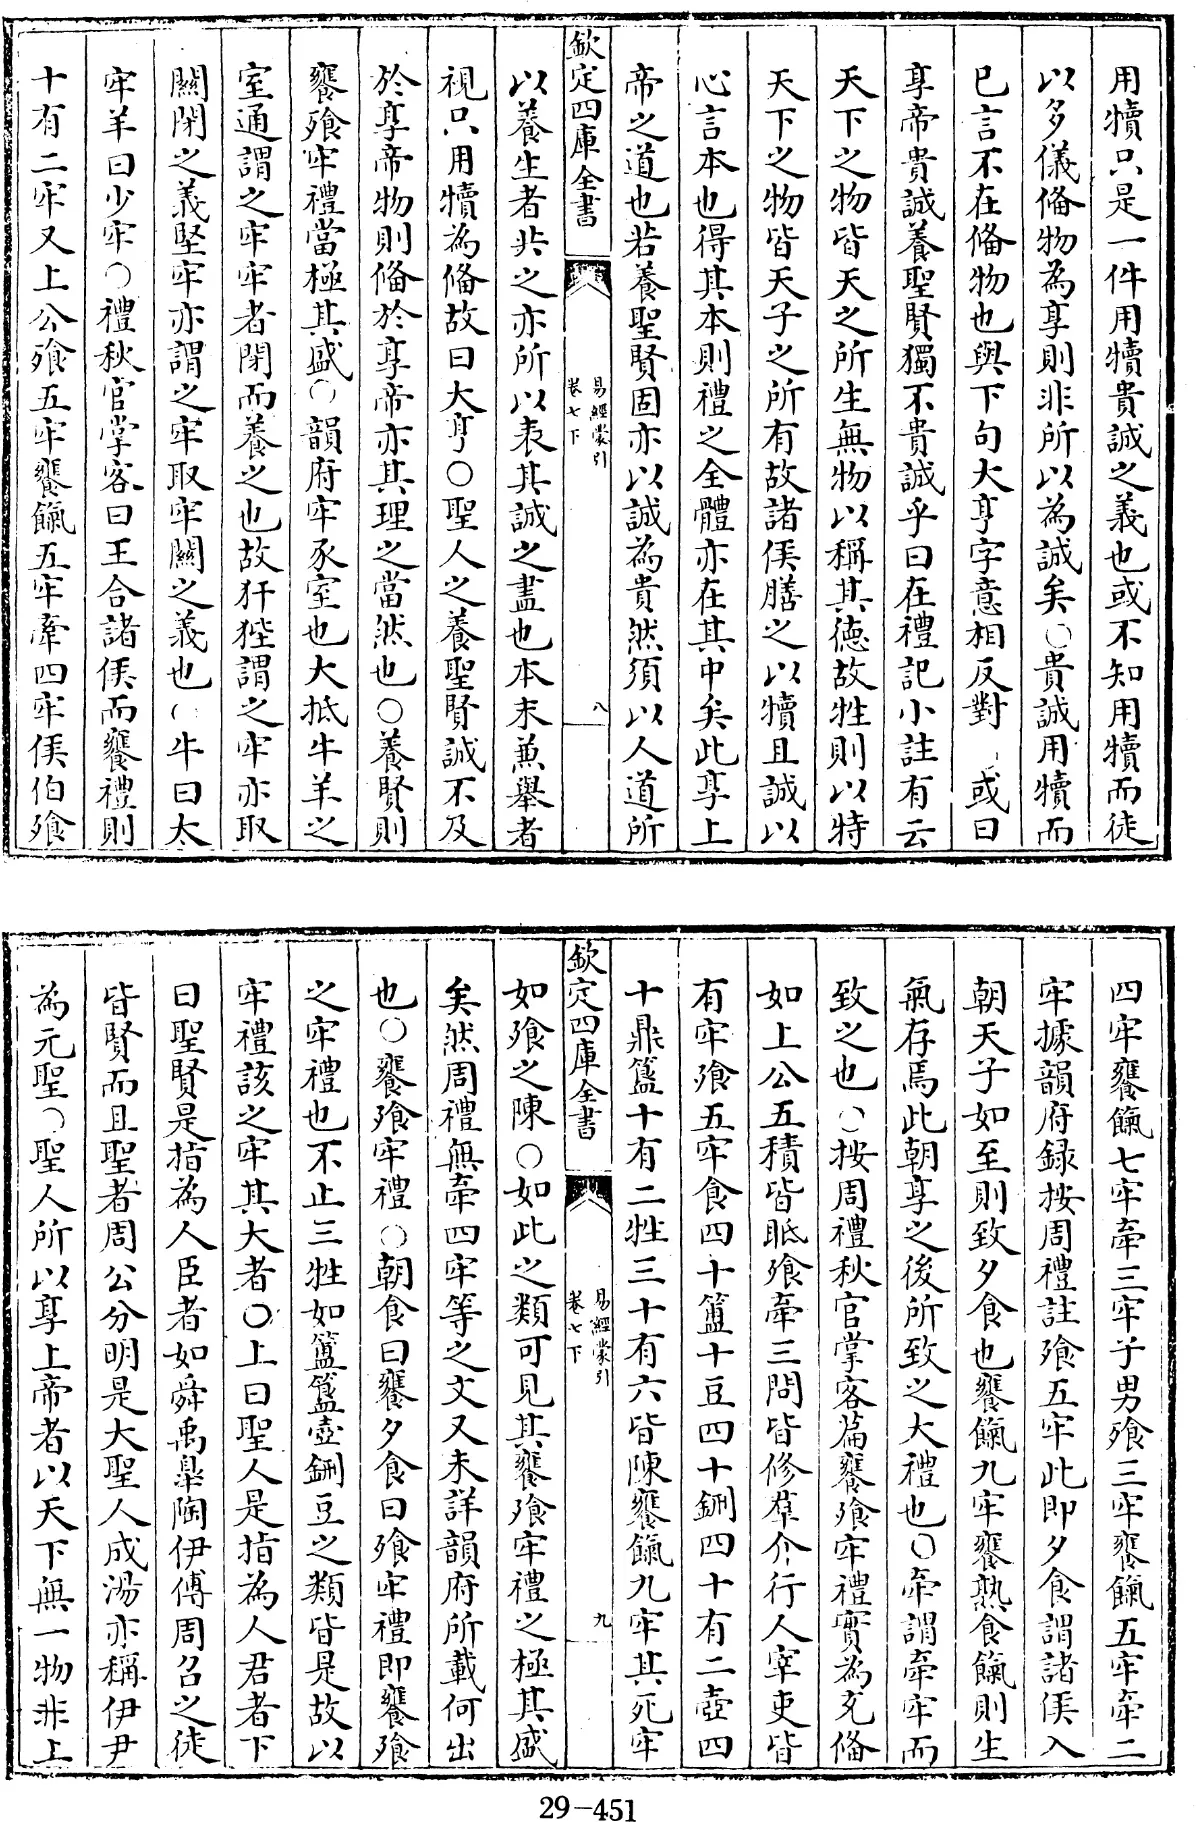 用犢只是一件用犢貴誠之義也或不知用犢而徒
以多儀備物為享則非所以為誠矣○貴誠用犢而
已言不在備物也與下句大亨字意相反對○或曰
享帝貴誠養聖賢獨不貴誠乎曰在禮記小註有云
天下之物皆天之所生無物以稱其德故牲則以特
天下之物皆天子之所有故諸侯膳之以犢且誠以
心言本也得其本則禮之全體亦在其中矣此享上
帝之道也若養聖賢固亦以誠為貴然須以人道所
欽定四庫全書
易經蒙引
卷七下
八
以養生者共之亦所以表其誠之盡也本末兼舉者
視只用犢為備故曰大亨○聖人之養聖賢誠不及
於享帝物則備於享帝亦其理之當然也○養賢則
饔飧牢禮當極其盛○韻府牢豕室也大抵牛羊之
室通謂之牢牢者閉而養之也故犴狴謂之牢亦取
關閉之義堅牢亦謂之牢取牢關之義也○牛曰太
牢羊曰少牢○禮秋官掌客曰王合諸侯而饔禮則
十有二牢又上公飧五牢饔餼五牢牽四牢侯伯飧
四牢饔餼七牢牽三牢子男飧三牢饔餼五牢牽二
牢據韻府録按周禮註飧五牢此即夕食謂諸侯入
朝天子如至則致夕食也饔餼九牢饔熟食餼則生
氣存焉此朝享之後所致之大禮也○牽謂牽牢而
致之也○按周禮秋官掌客篇饔飧牢禮實為充備
如上公五積皆眡飧牽三問皆修羣介行人宰吏皆
有牢飧五牢食四十簠十豆四十鉶四十有二壺四
十鼎簋十有二牲三十有六皆陳饔餼九牢其死牢
欽定四庫全書
易經蒙引
卷七下
九
如飧之陳○如此之類可見其饔飧牢禮之極其盛
矣然周禮無牽四牢等之文又未詳韻府所載何出
也○饔飧牢禮○朝食曰饔夕食曰飧牢禮即饔飧
之牢禮也不止三牲如簠簋壺鉶豆之類皆是故以
牢禮該之牢其大者○上曰聖人是指為人君者下
曰聖賢是指為人臣者如舜禹臯陶伊傅周召之徒
皆賢而且聖者周公分明是大聖人成湯亦稱伊尹
為元聖○聖人所以享上帝者以天下無一物非上
29-451